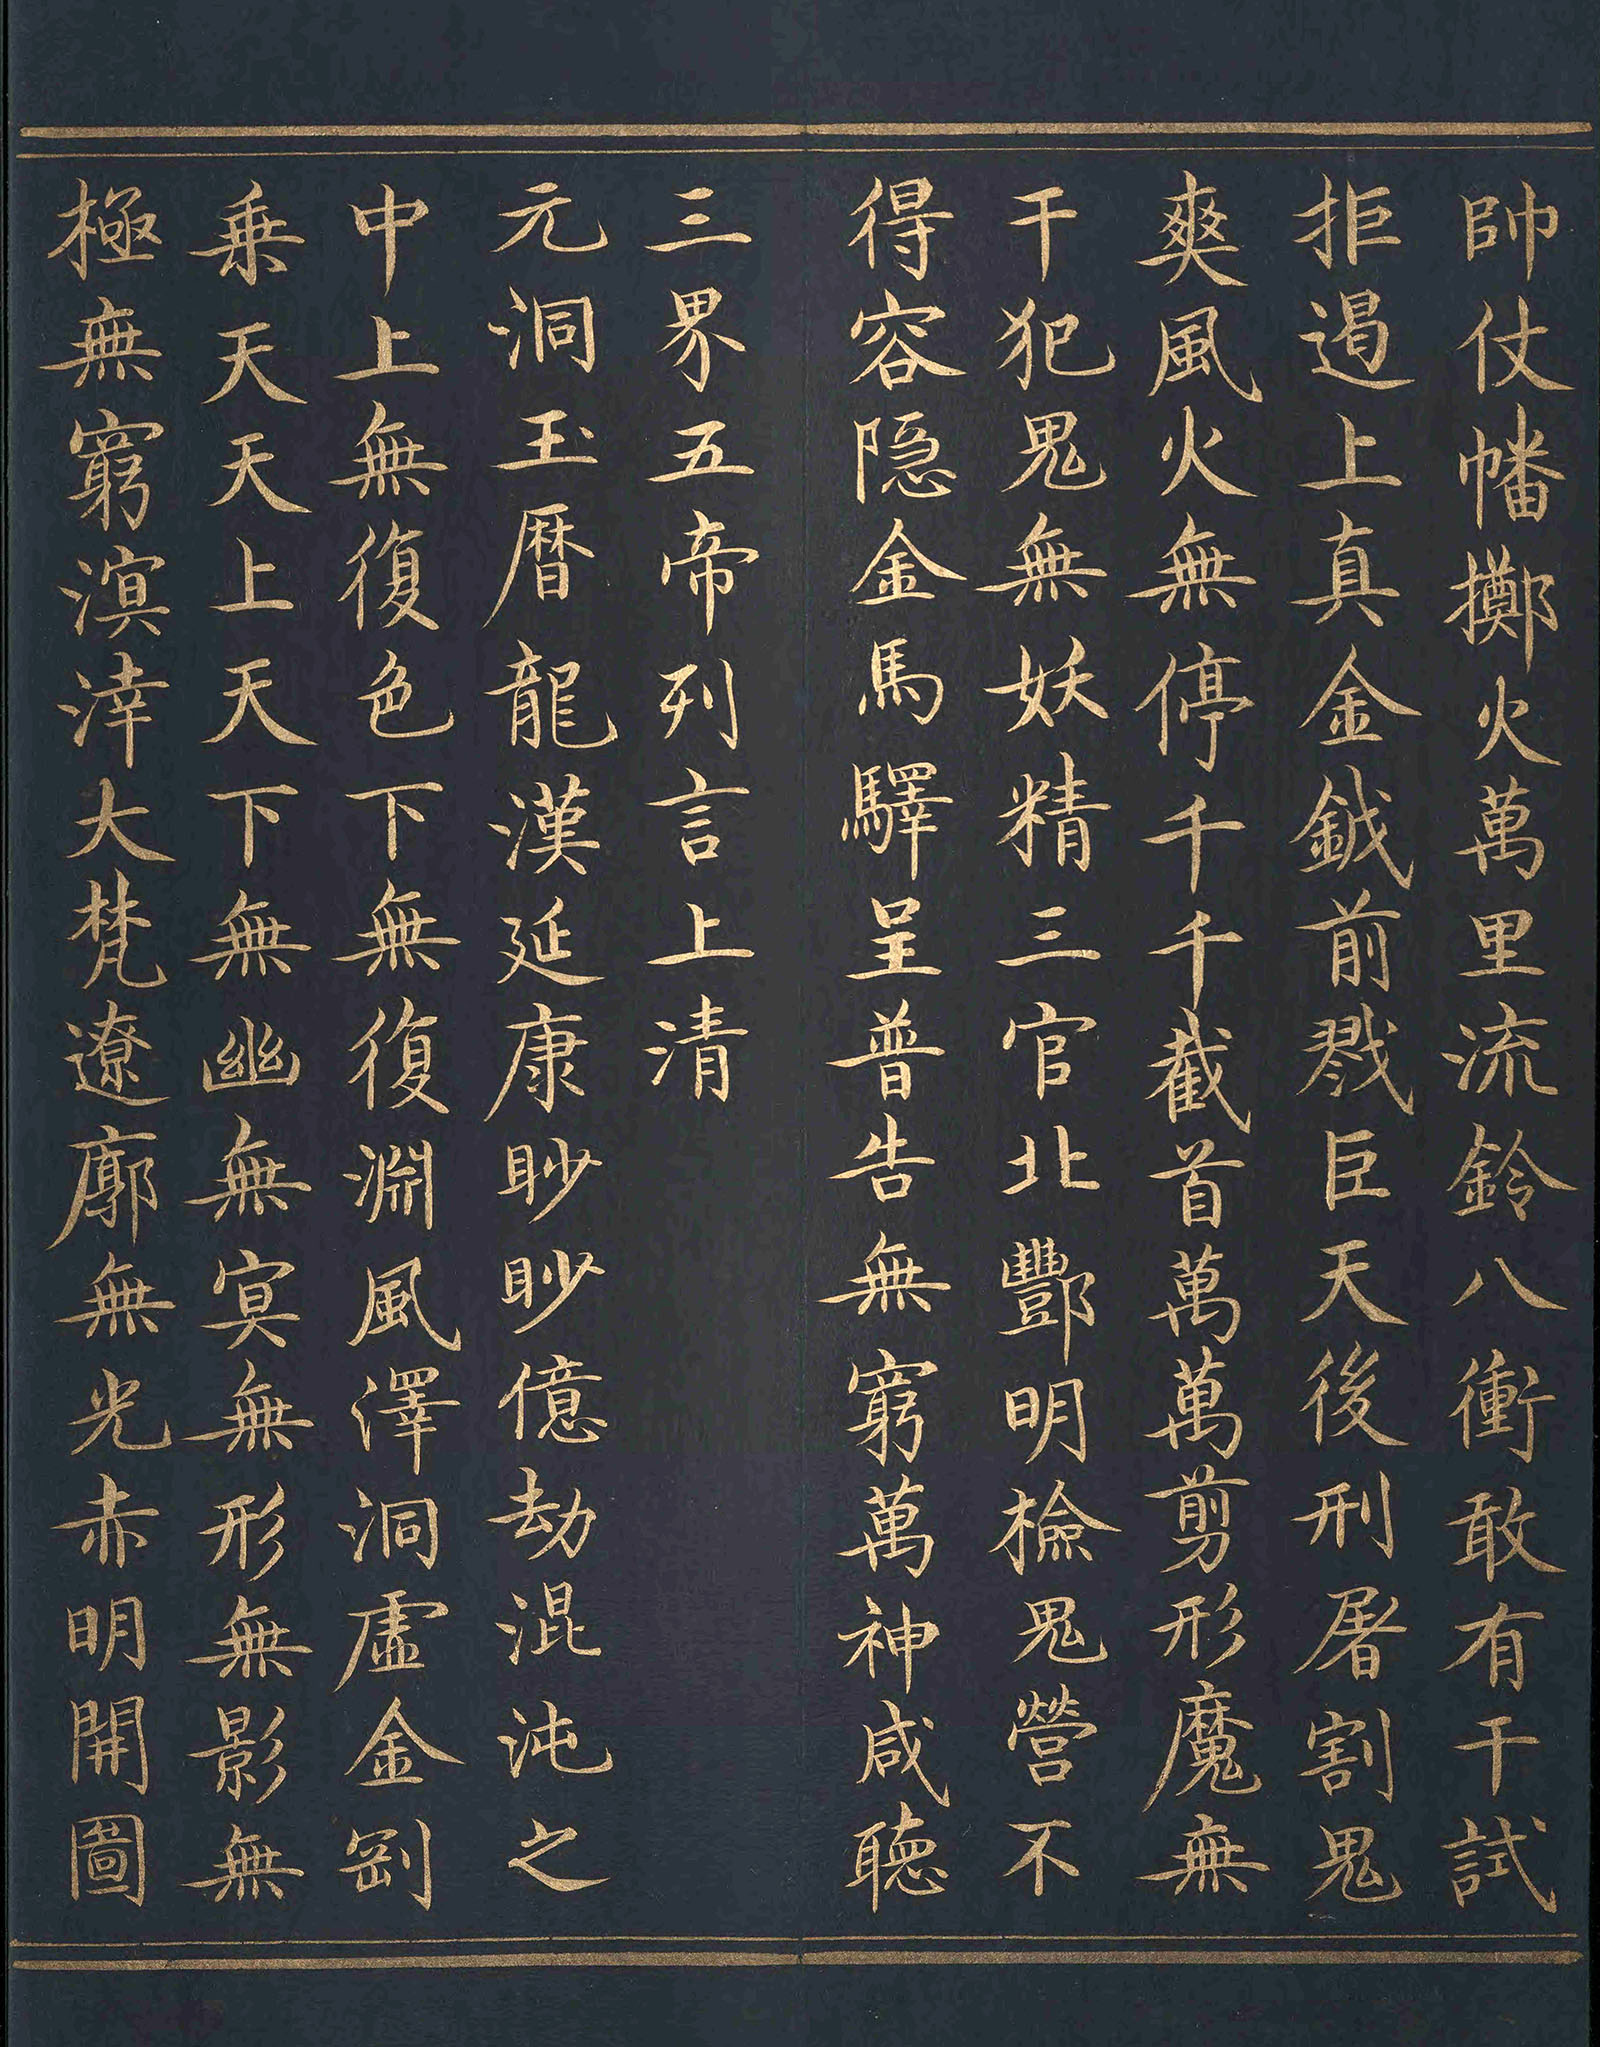 帥仗幡擲火萬里流鈴八衝敢有干試
拒遏上真金鉞前戮臣天後刑屠割鬼
爽風火無停千千截首萬萬剪形魔無
干犯鬼無妖精三官北酆明檢鬼營不
得容隱金馬驛呈普告無窮萬神咸聽
三界五帝列言上清
元洞玉曆龍漢延康眇眇億劫混沌之
中上無復色下無復淵風澤洞虛金剛
乗天天上天下無幽無冥無形無影無
極無窮溟涬大梵遼廓無光赤明開圖